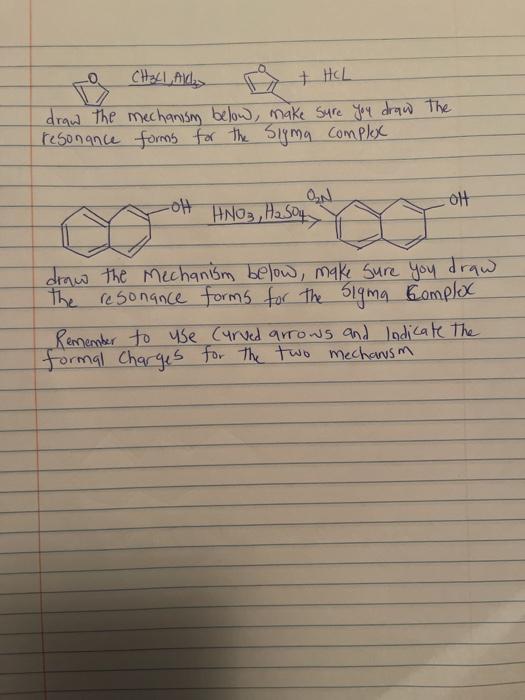 O CH3Cl, AlCl3 O + HCL
draw the mechanism below, make sure you draw the
resonance forms for the Sigma Complex
OH HNO3, H2SO4 O2N OH
draw the Mechanism below, make sure you draw
the resonance forms for the Sigma Complex
Remember to use Curved arrows and Indicate the
formal Charges for the two mechanism